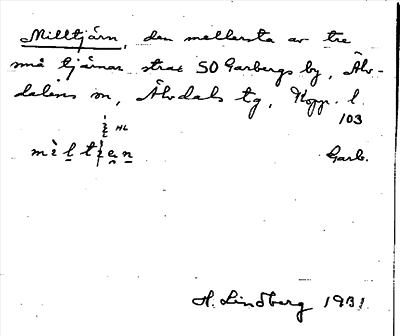 Milltjärn, den mellersta av tre
små tjärnar strax SO Garbergs by, Älv-
dalens sn, Älvdals tg, Kopp. l.
103
HL
Garb.
H. Lindberg 1931